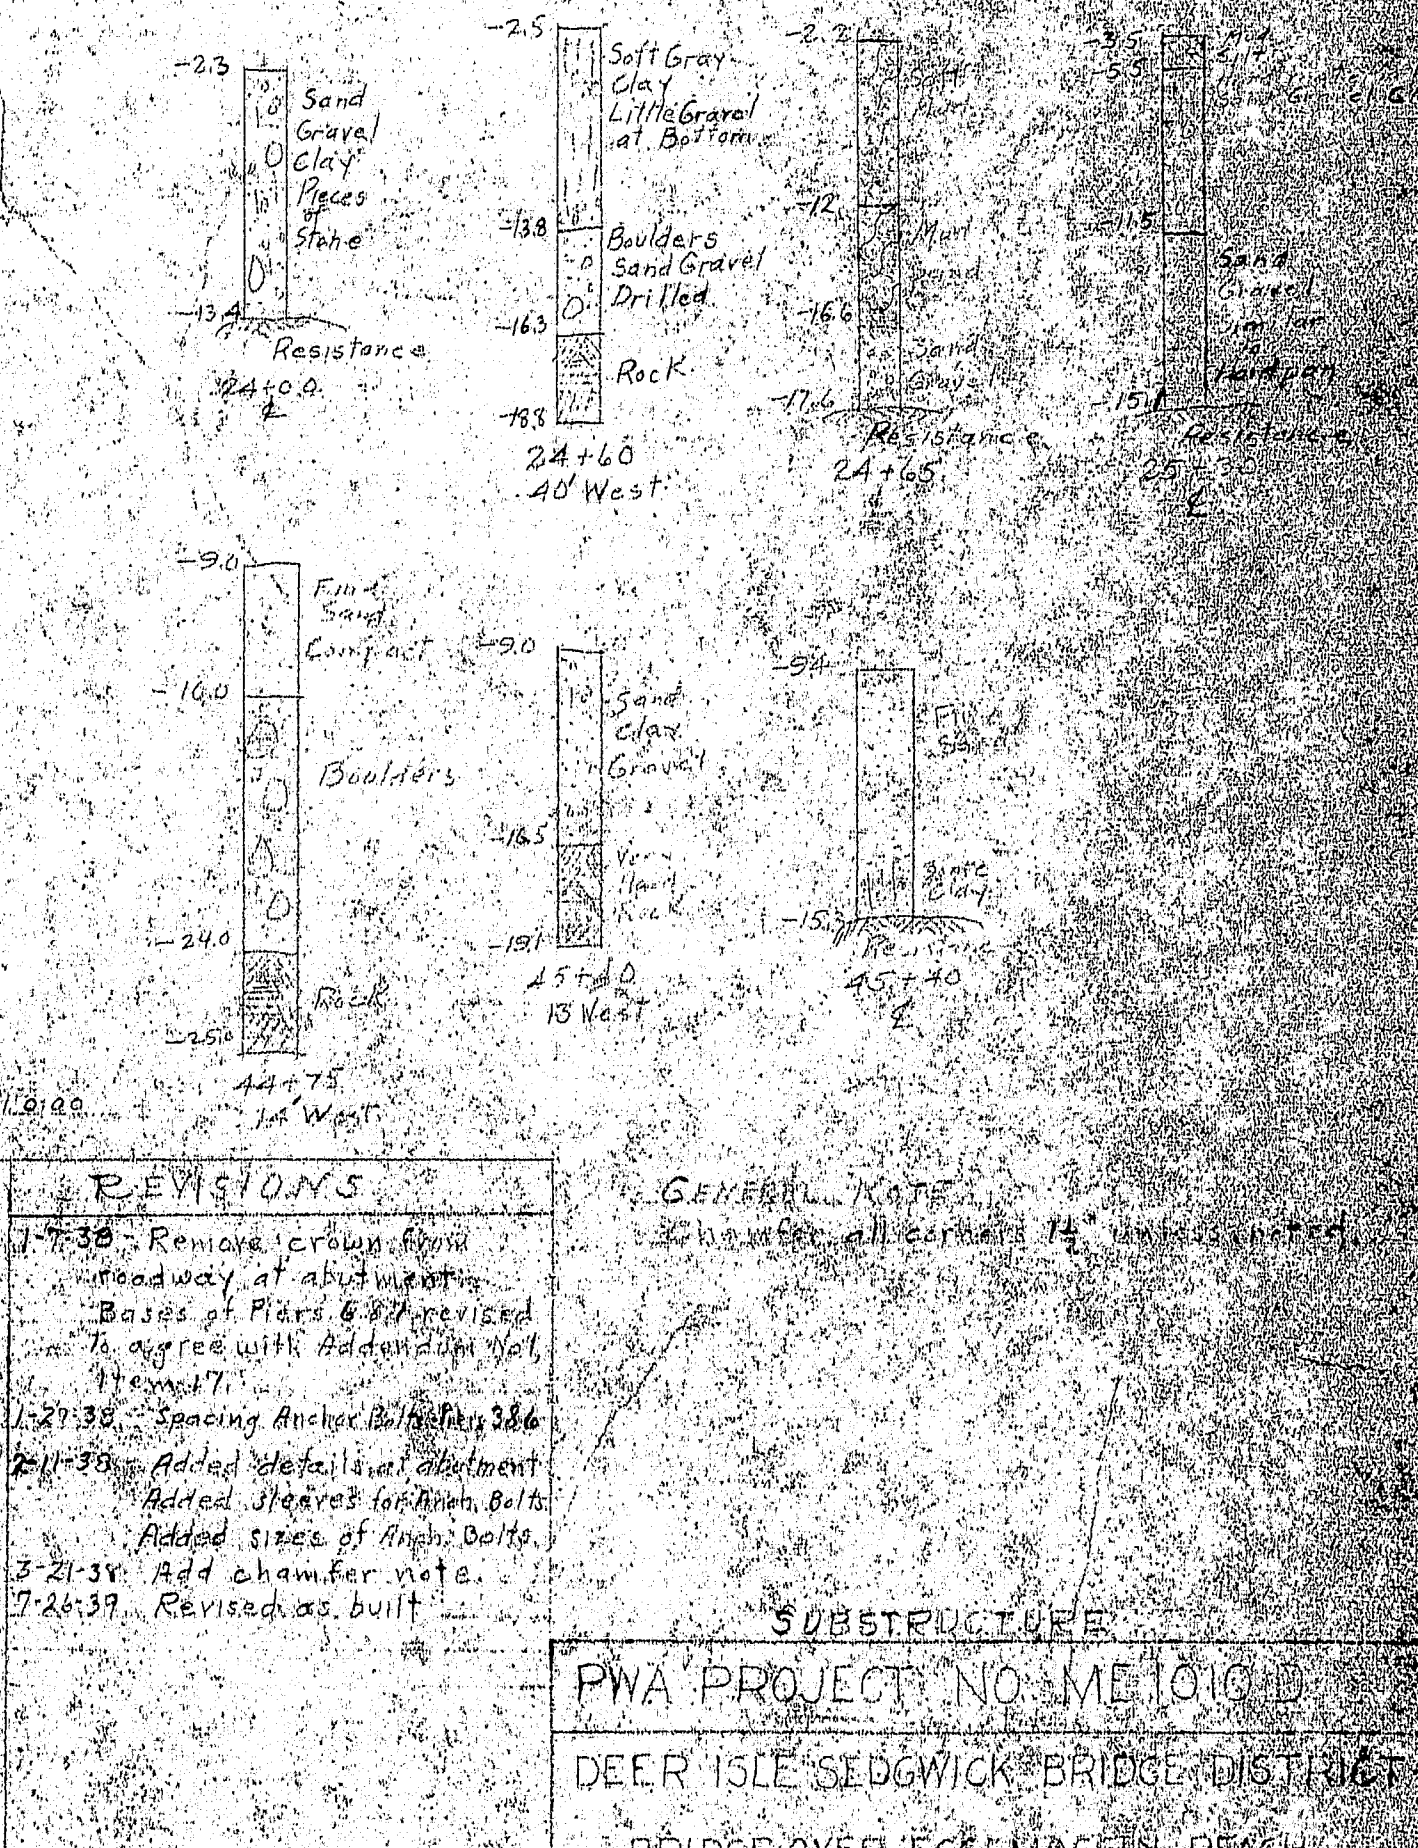 -2.3
Sand
Gravel
Clay
Pieces
of
Stone
-13.4
Resistance
24+00
℄
-2.5
Soft Gray
Clay
Little Gravel
at Bottom
-13.8
Boulders
Sand Gravel
Drilled
-16.3
Rock
-18.8
24+60
40' West
-2.2
Soft
-12
Sand
-16.6
Sand
Gravel
-17.6
Resistance
24+65
℄
-3.5
-5.5
-11.5
Sand
Gravel
Similar
to
Hardpan
Resistance
25+30
℄
-9.0
Fine
Sand
Compact
Boulders
-24.0
Rock
44+75
West
-9.0
Sand
Clay
Gravel
-16.5
Very
Hard
Rock
-19.1
45+40
13 West
-9.4
Fine
Sand
Some
Clay
-15.3
Resistance
45+40
℄
REVISIONS
1-7-38 - Remove crown from
roadway at abutment
Bases of Piers 6 & 7 revised
to agree with Addendum No 1,
Item 17.
1-27-38 - Spacing Anchor Bolts Piers 3&6
2-11-38 - Added details at abutment
Added sleeves for Anch. Bolts
Added sizes of Anch. Bolts.
3-21-38 Add chamfer note.
7-26-39 Revised as built
GENERAL NOTE
Chamfer all corners 1½" unless noted.
SUBSTRUCTURE
PWA PROJECT NO. ME 1010 D
DEER ISLE SEDGWICK BRIDGE DISTRICT
BRIDGE OVER EGGEMOGGIN REACH